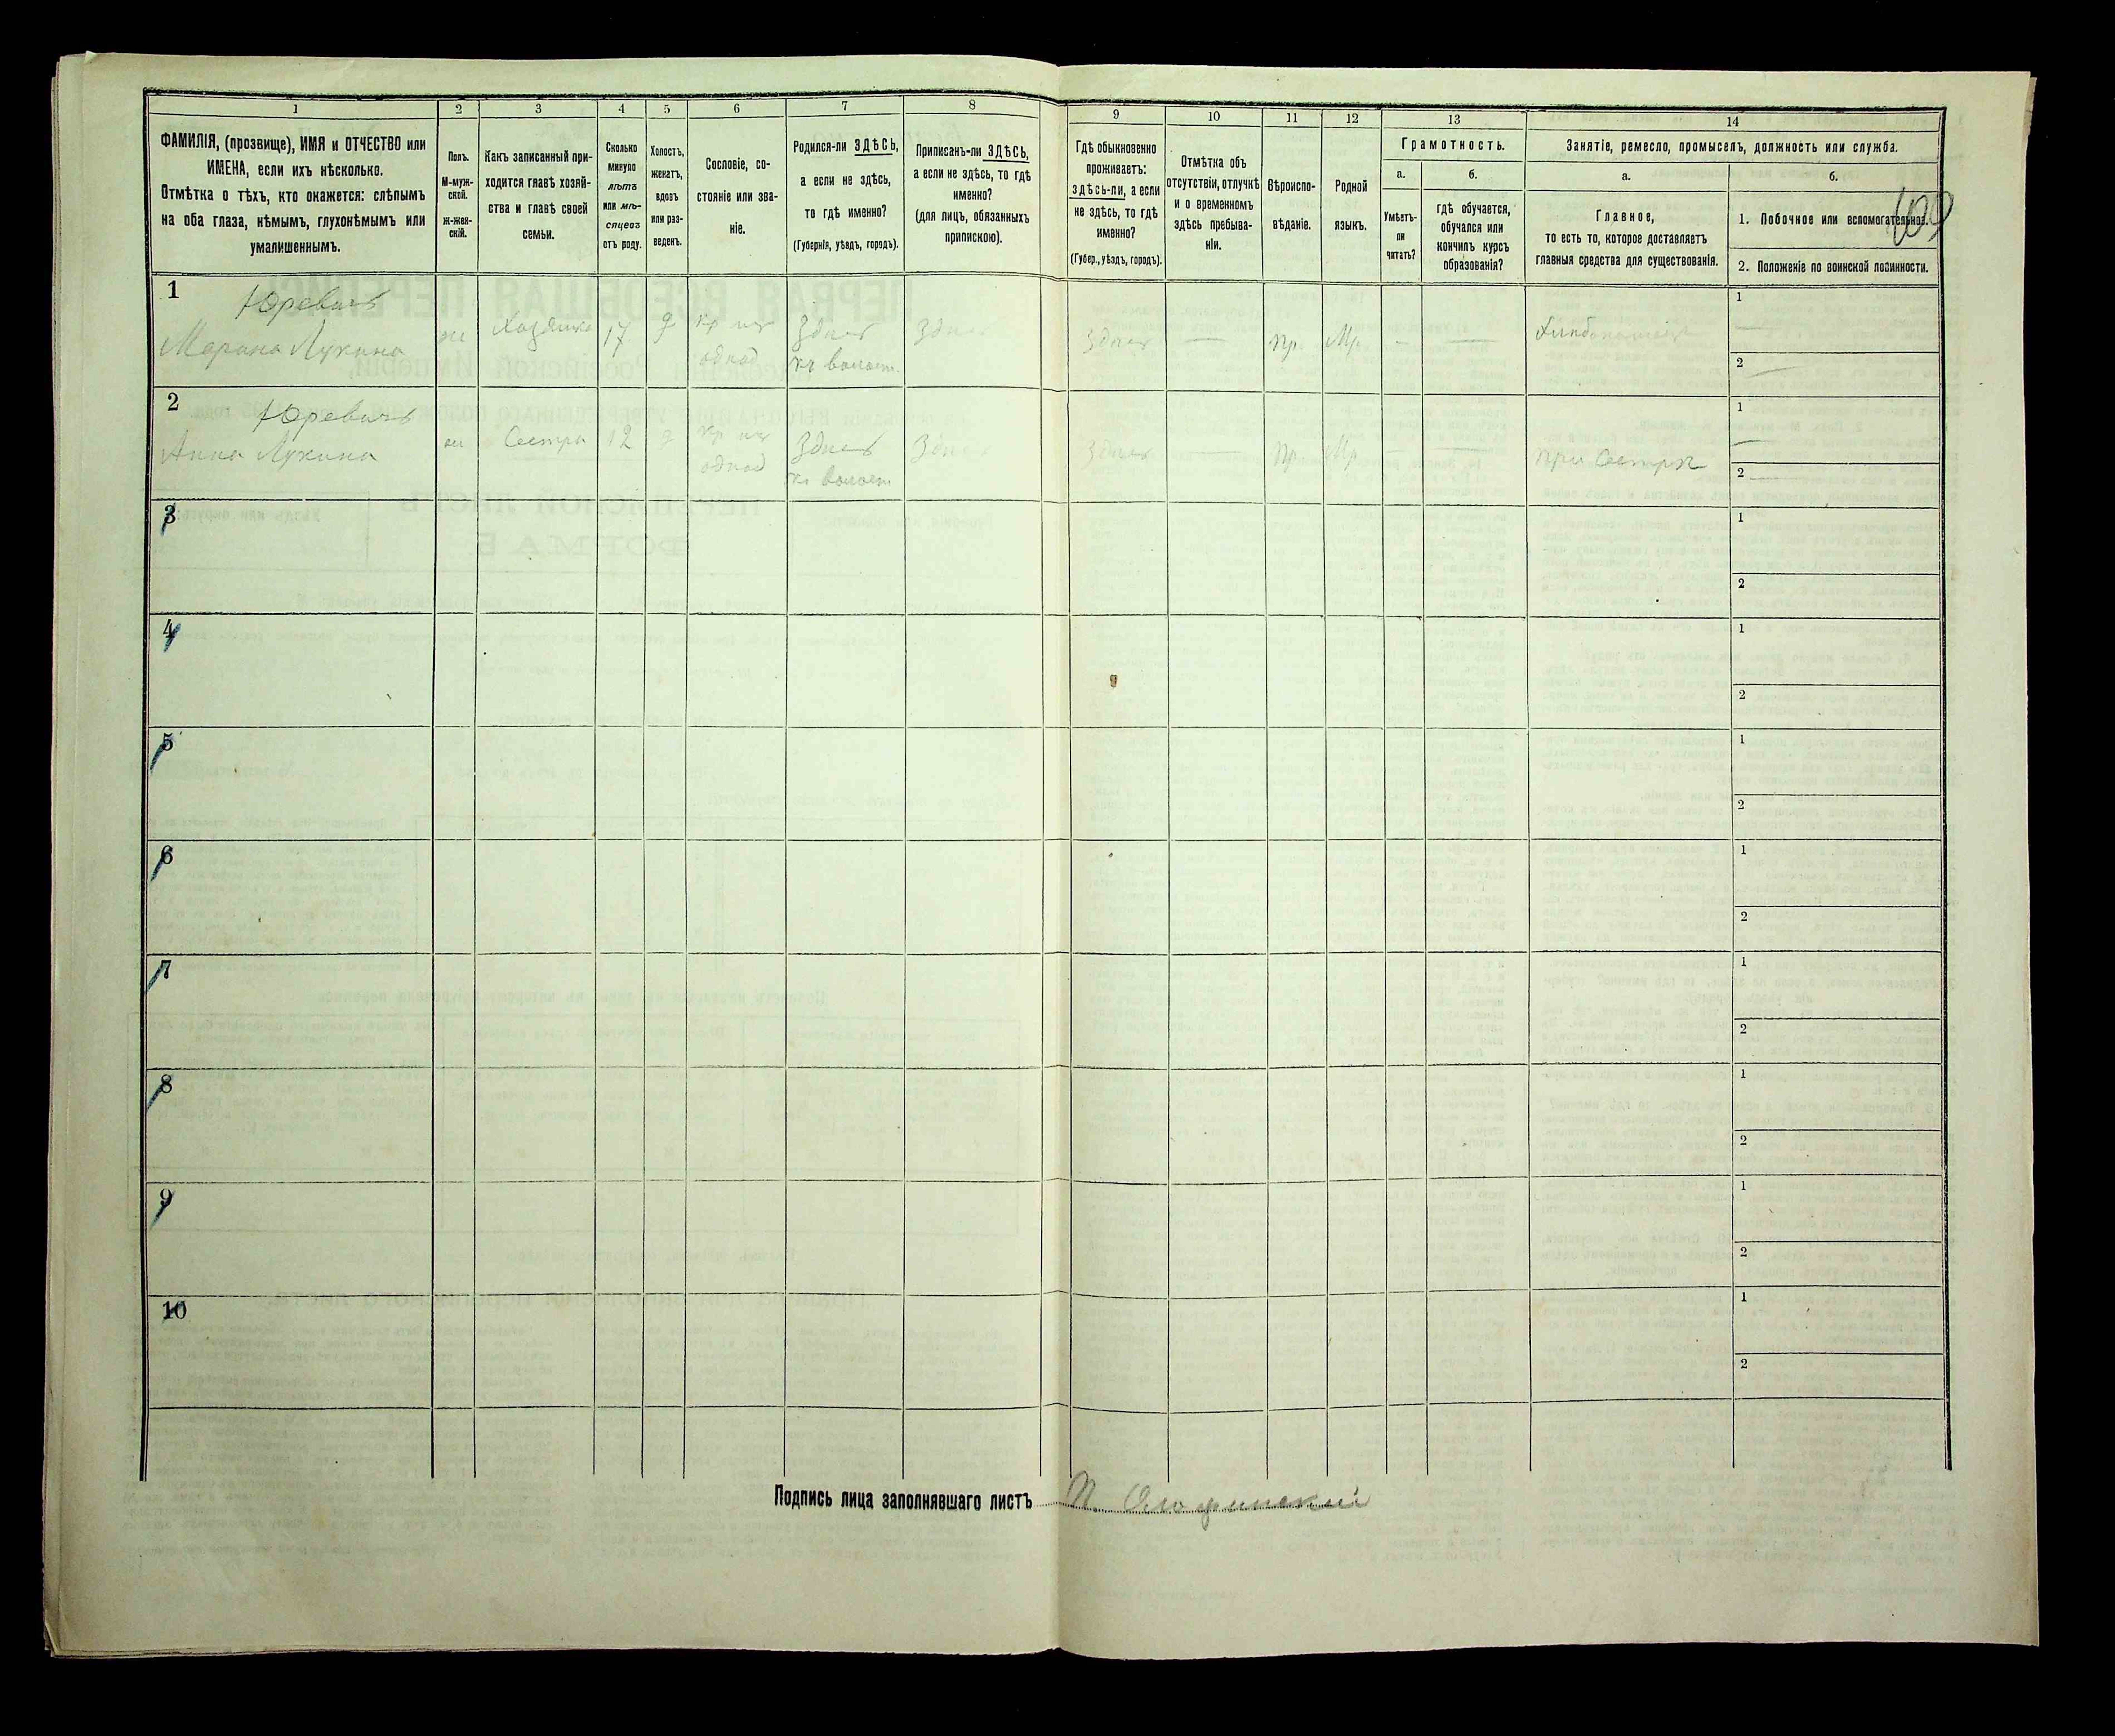 1 2 3 4 5 6 7 8 9 10 11 12 13 14
ФАМИЛІЯ, (прозвище), ИМЯ и ОТЧЕСТВО или
ИМЕНА, если ихъ нѣсколько.
Отмѣтка о тѣхъ, кто окажется: слѣпымъ
на оба глаза, нѣмымъ, глухонѣмымъ или
умалишеннымъ.
Полъ.
М-муж-
ской.
ж-жен-
скій.
Какъ записанный при-
ходится главѣ хозяй-
ства и главѣ своей
семьи.
Сколько
минуло
лѣтъ
или мѣ-
сяцевъ
отъ роду.
Холостъ,
женатъ,
вдовъ
или раз-
веденъ.
Сословіе, со-
стояніе или зва-
ніе.
Родился-ли ЗДѢСЬ,
а если не здѣсь,
то гдѣ именно?
(Губернія, уѣздъ, городъ).
Приписанъ-ли ЗДѢСЬ,
а если не здѣсь, то гдѣ
именно?
(для лицъ, обязанныхъ
припискою).
Гдѣ обыкновенно
проживаетъ:
здѣсь-ли, а если
не здѣсь, то гдѣ
именно?
(Губер., уѣздъ, городъ).
Отмѣтка объ
отсутствіи, отлучкѣ
и о временномъ
здѣсь пребыва-
ніи.
Вѣроиспо-
вѣданіе.
Родной
языкъ.
Грамотность.
а.
Умѣетъ-
ли
читать?
б.
гдѣ обучается,
обучался или
кончилъ курсъ
образованія?
Занятіе, ремесло, промыселъ, должность или служба.
а.
Главное,
то есть то, которое доставляетъ
главныя средства для существованія.
б.
1. Побочное или вспомогательное.
2. Положеніе по воинской повинности.
109
1 Юревичъ
Марина Лукина
ж Хозяйка 17 д
Здѣсь
Здѣсь
Здѣсь — пр. — —
1 —
2 —
2 Юревичъ
Анна Лукина
ж Сестра 12 д
Здѣсь
Здѣсь
Здѣсь — пр — —
при сестрѣ
1 —
2 —
3
1
2
4
1
2
5
1
2
6
1
2
7
1
2
8
1
2
9
1
2
10
1
2
Подпись лица заполнявшаго листъ